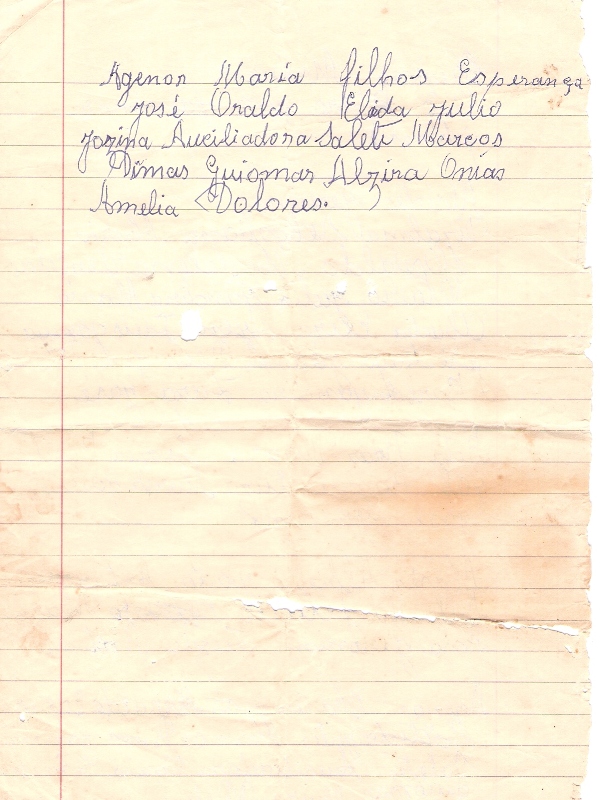 Agenor Maria filhos Esperança
José Oraldo Elida Julio
Jozina Auxiliadora Saleti Marcos
Dimas Guiomar Alzira Onias
Amelia Dolores.